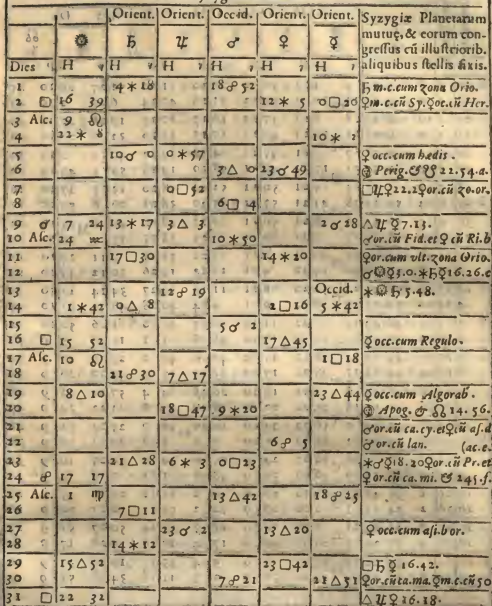 Orient. Orient. Occid. Orient. Orient. Syzygiæ Planetarum
☉ ♄ ♃ ♂ ♀ ☿ mutuę, & eorum con-
gressus cū illustriorib.
Dies H H H H H H aliquibus stellis fixis.
1 4✶18 18☍52 ♄ m.c.cum zona Orio.
2 □ 16 39 12✶5 0□20 ☿m.c.cū Sy.☿oc.cū Her.
3 Asc. 9 ♌
4 22✶8 10✶2
5 10☌0 0✶57 ♀ occ.cum hædis.
6 3△0 23☌49 Perig. 22.54.a.
7 0□52 □♃♀22.2♀or.cū zo.or.
8 6□4
9 ☌ 7 24 13✶17 3△3 2☌28 △♃☿7.13.
10 Asc. 24 ♒ 10✶50 ♂or.cū Fid.et ♀ cū Ri.b
11 17□30 14✶20 ♀or.cum vlt.zona Orio.
12 ☌☉☿3.0.✶♄☿16.26.c
13 12☍19 Occid. ✶☉♄5.48.
14 1✶42 0△8 2□16 5✶42
15 5☌2
16 □ 15 52 17△45 ☿occ.cum Regulo.
17 Asc. 10 ♌ 1□18
18 21☍30 7△17
19 8△10 23△44 ☿occ.cum Algorab.
20 18□47 9✶20 Apog. ☌ ☊ 14.56.
21 ♂or.cū ca.cy.et♀cū asi.d
22 6☍5 ♂or.cū lan. (ac.e.
23 21△28 6✶3 0□23 ✶♂☿18.20♀or.cū Pr.et
24 ☍ 17 17 ♀or.cū ca.mi. & 245.f.
25 Asc. 1 ♍ 13△42 18☍25
26 7□11
27 23☌2 13△20 ♀occ.cum asi.b or.
28 14✶12
29 15△52 23□42 □♄☿16.42.
30 7☍21 21△51 ♀or.cū ca.ma.☿m.c.cū50
31 □ 22 32 △♃☿16.18.